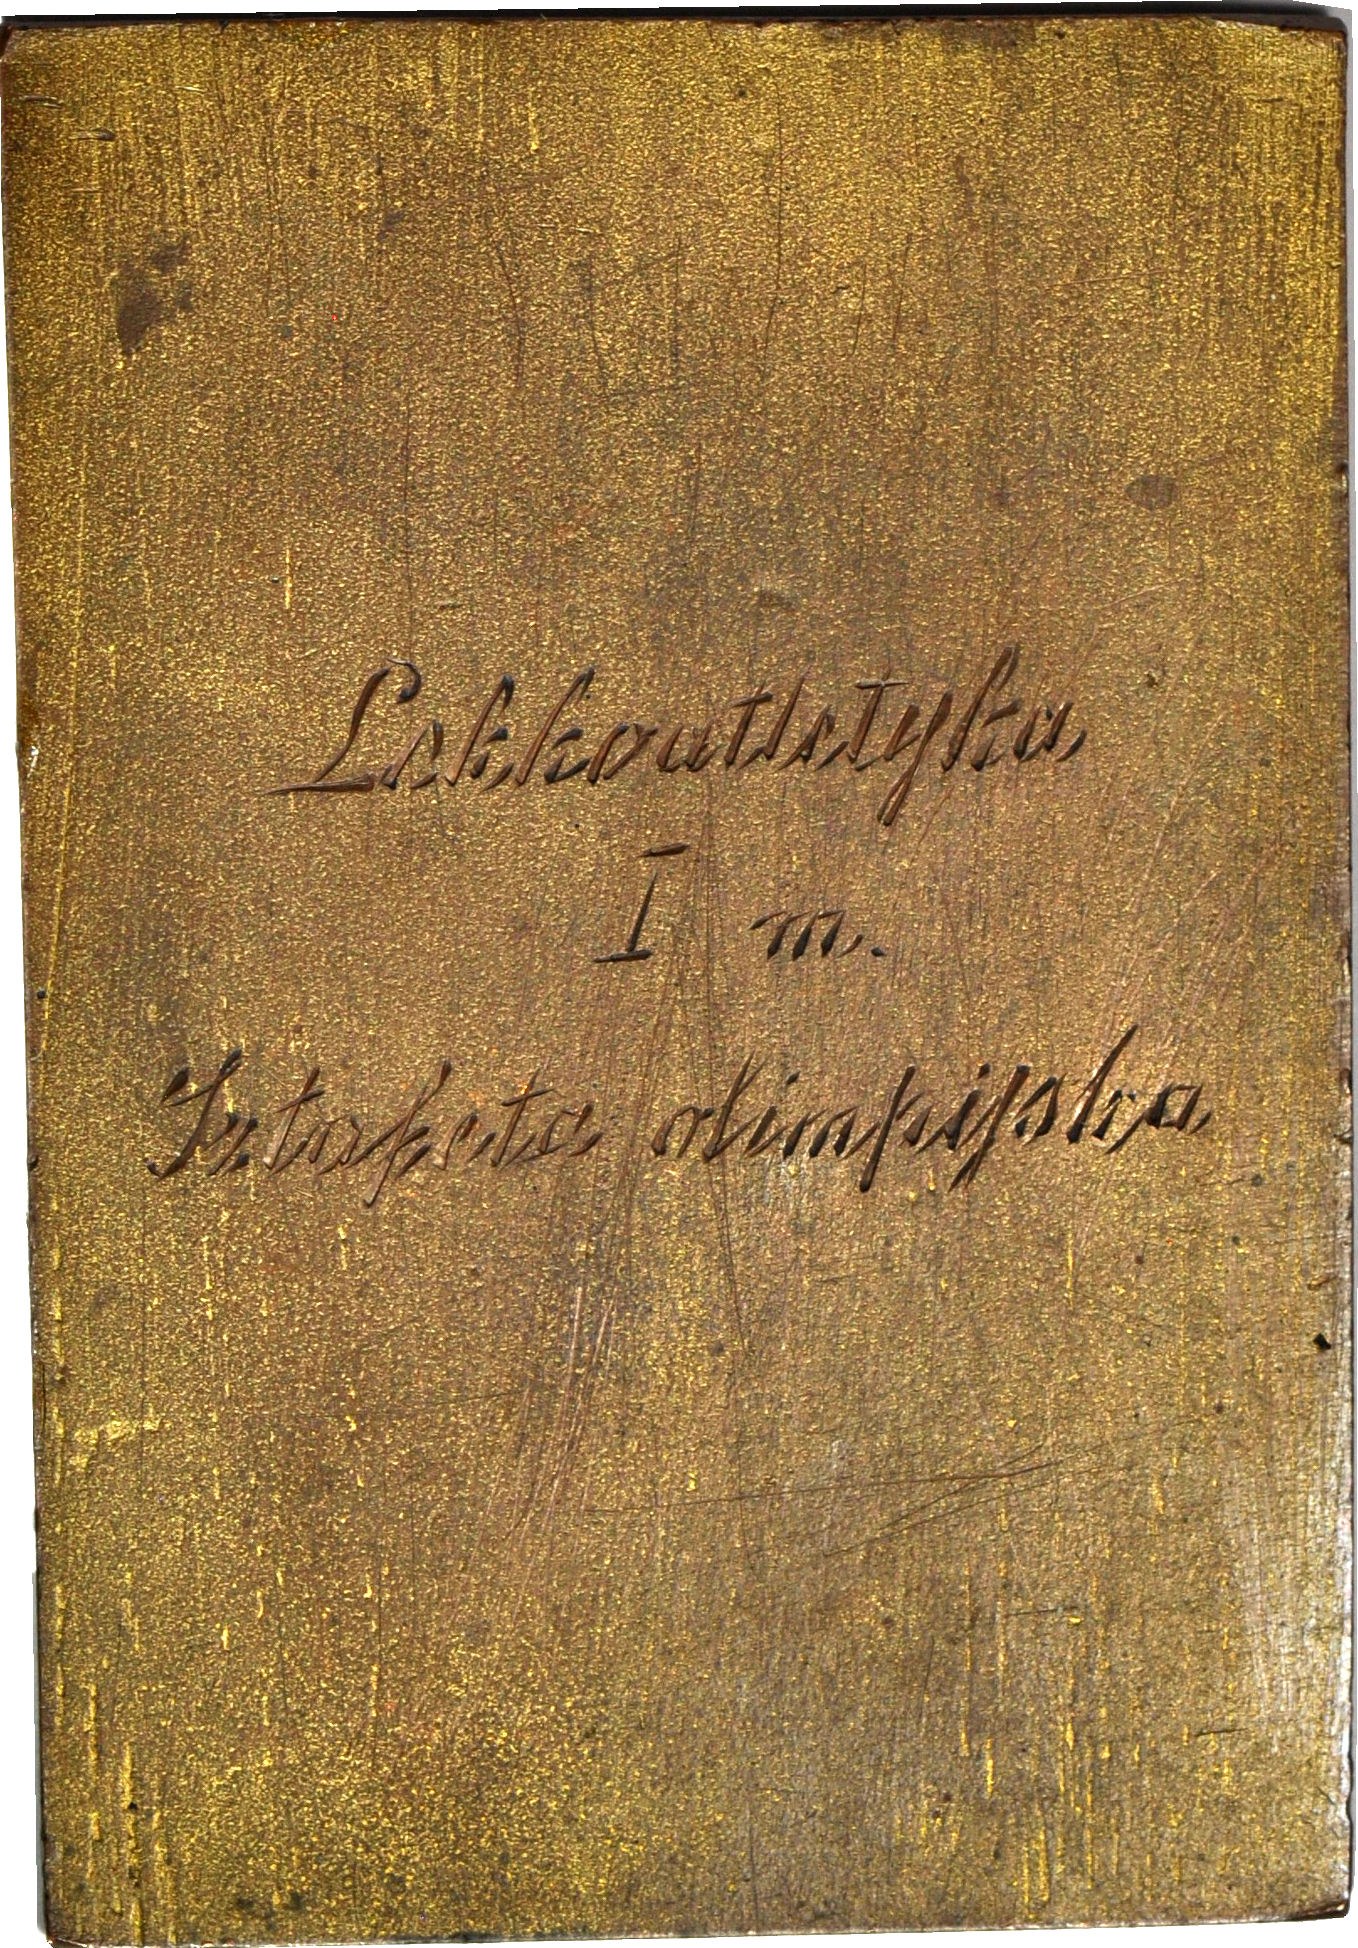 Lekkoatletyka
I m.
Sztafeta olimpijska